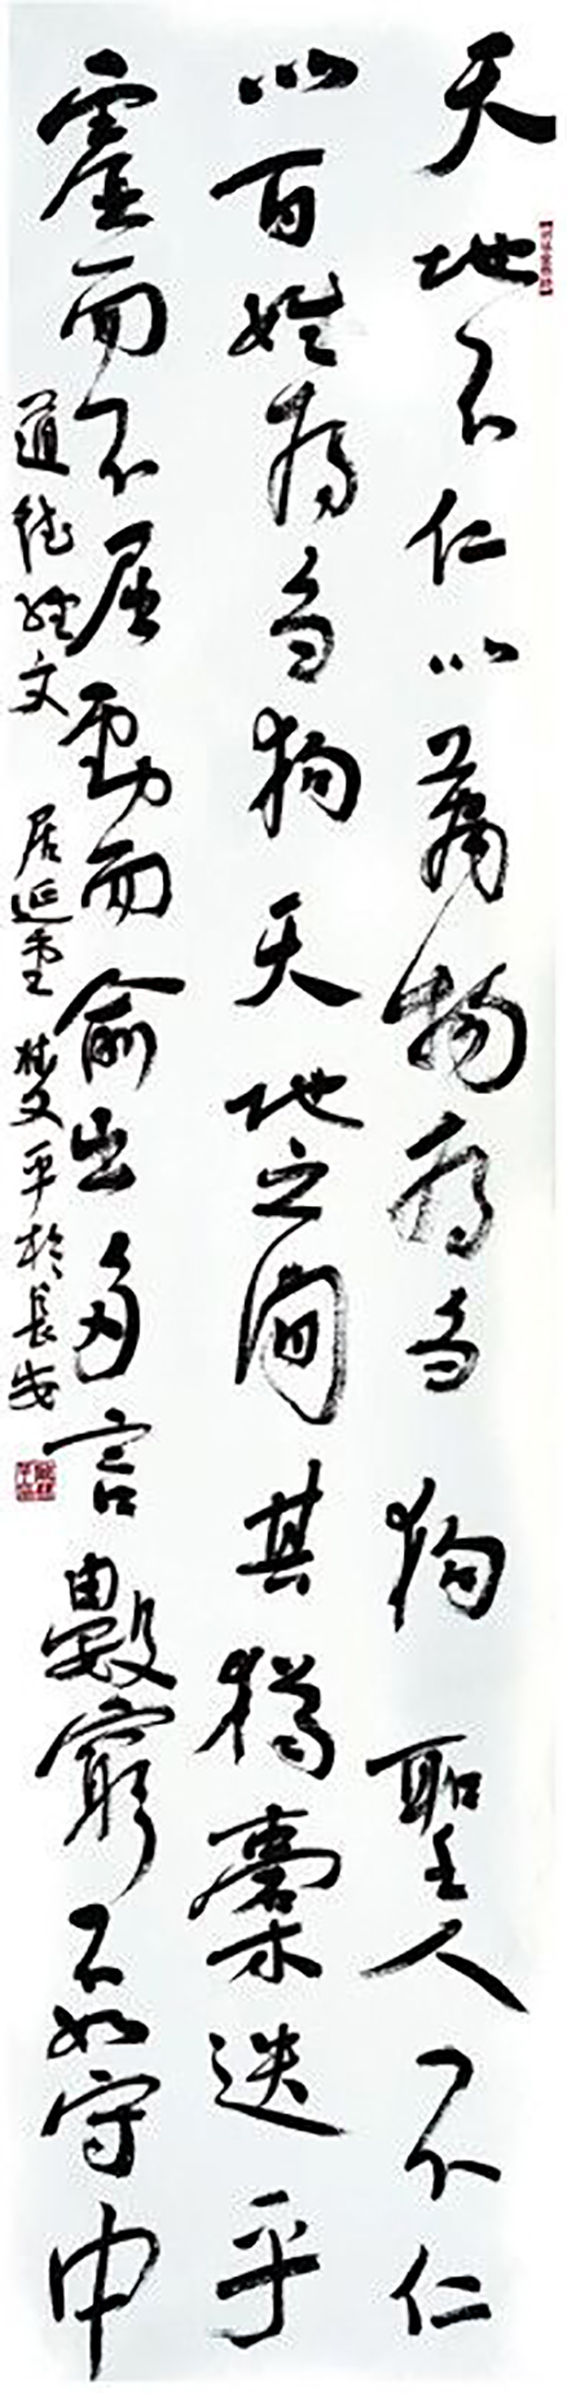 天地不仁以萬物為芻狗聖人不仁
以百姓為芻狗天地之間其猶橐迭乎
虛而不屈動而俞出多言數窮不如守中
道德經文 居延堂 双平於長安